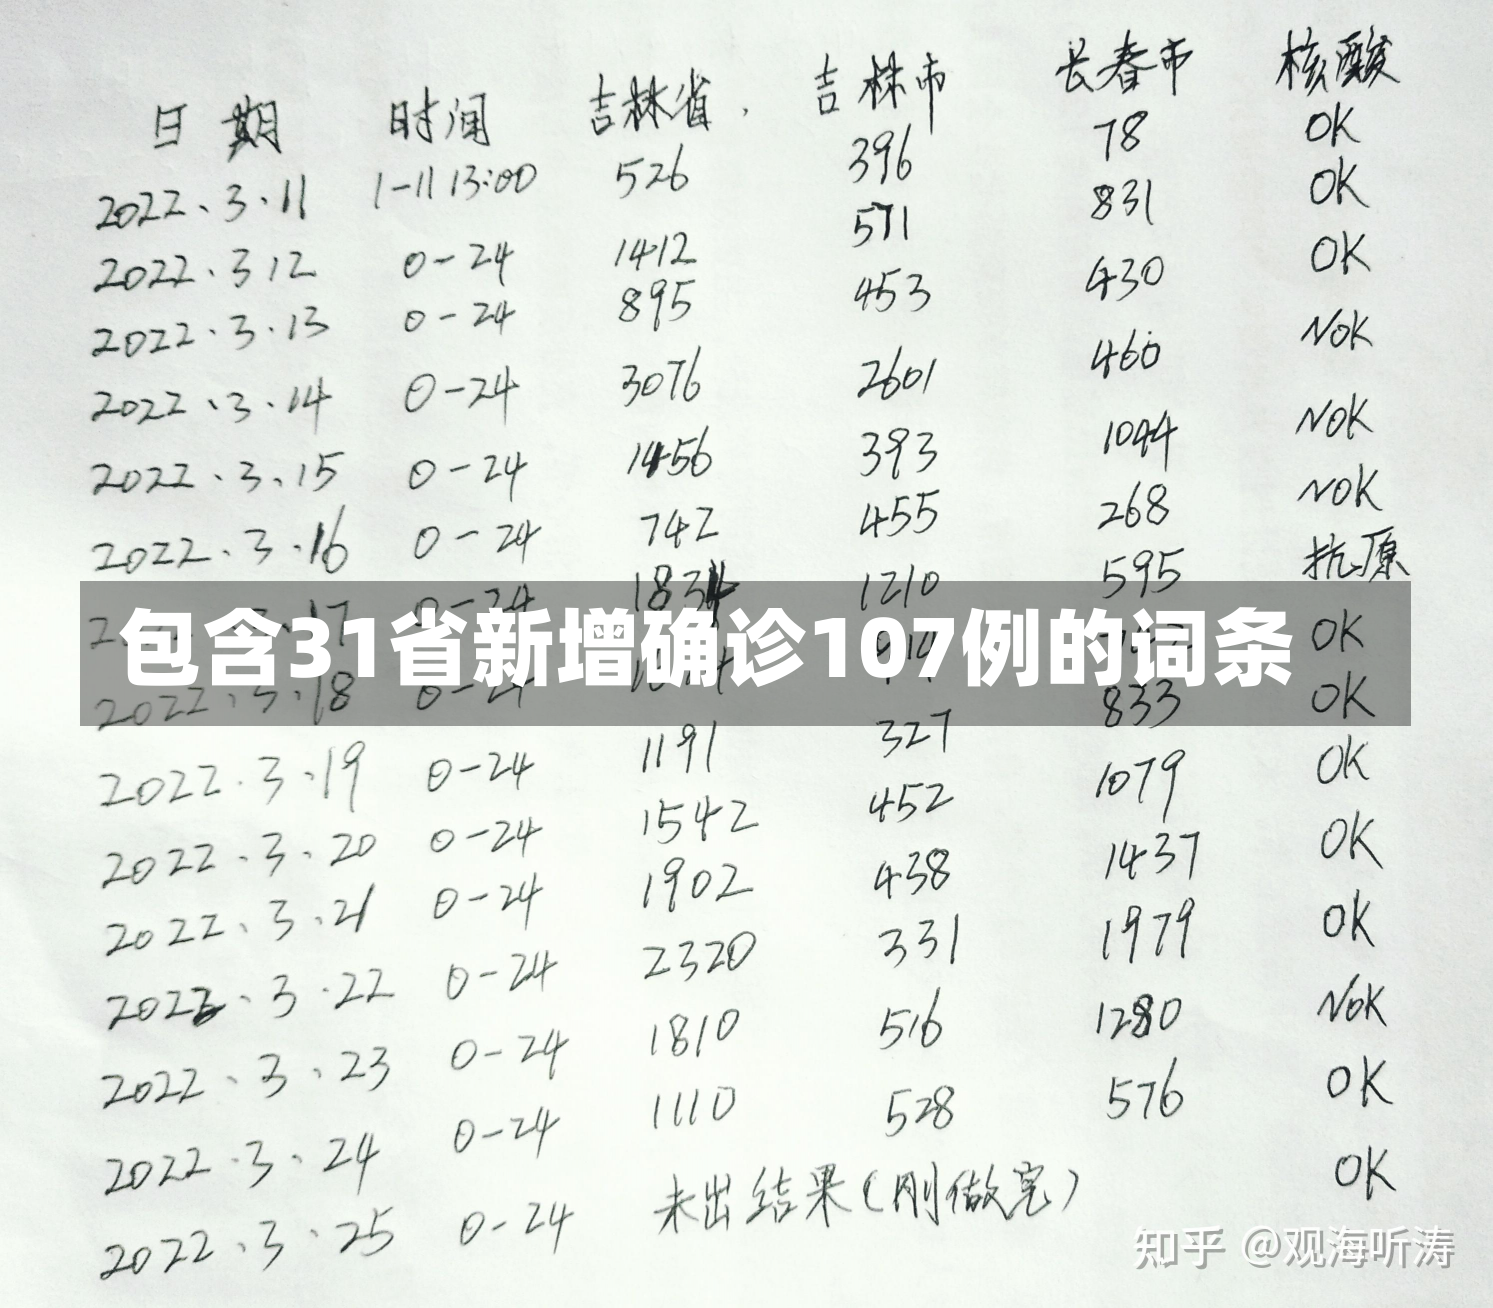 日期 时间 吉林省 吉林市 长春市 核酸
2022.3.11 1-11 13:00 526 396 78 OK
2022.3 12 0-24 1412 571 831 OK
2022.3.13 0-24 895 453 430 OK
2022.3.14 0-24 3076 2601 460 NOK
2022.3.15 0-24 1456 393 1044 NOK
2022.3.16 0-24 742 455 268 NOK
17 0-24 1834 1210 595 抗原
包含31省新增确诊107例的词条
2022.3.18 0-24 OK
2022.3.19 0-24 1191 327 833 OK
2022.3.20 0-24 1542 452 1079 OK
2022.3.21 0-24 1902 438 1437 OK
2022.3.22 0-24 2320 331 1979 OK
2022.3.23 0-24 1810 516 1280 NOK
2022.3.24 0-24 1110 528 576 OK
2022.3.25 0-24 未出结果(刚做完) OK
知乎 @观海听涛